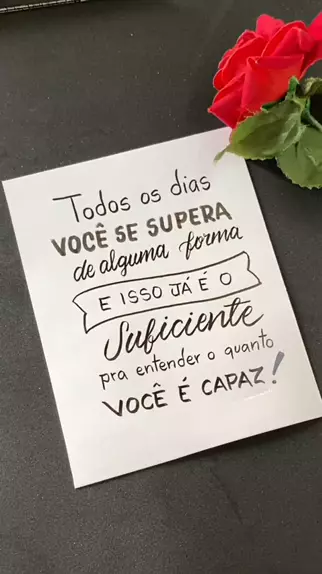 Todos os dias
VOCÊ SE SUPERA
de alguma forma
E ISSO JÁ É O
Suficiente
pra entender o quanto
VOCÊ É CAPAZ!